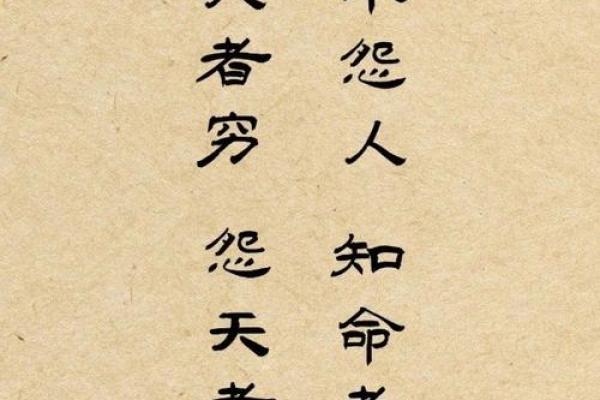 怨人 知命者
者穷 怨天者